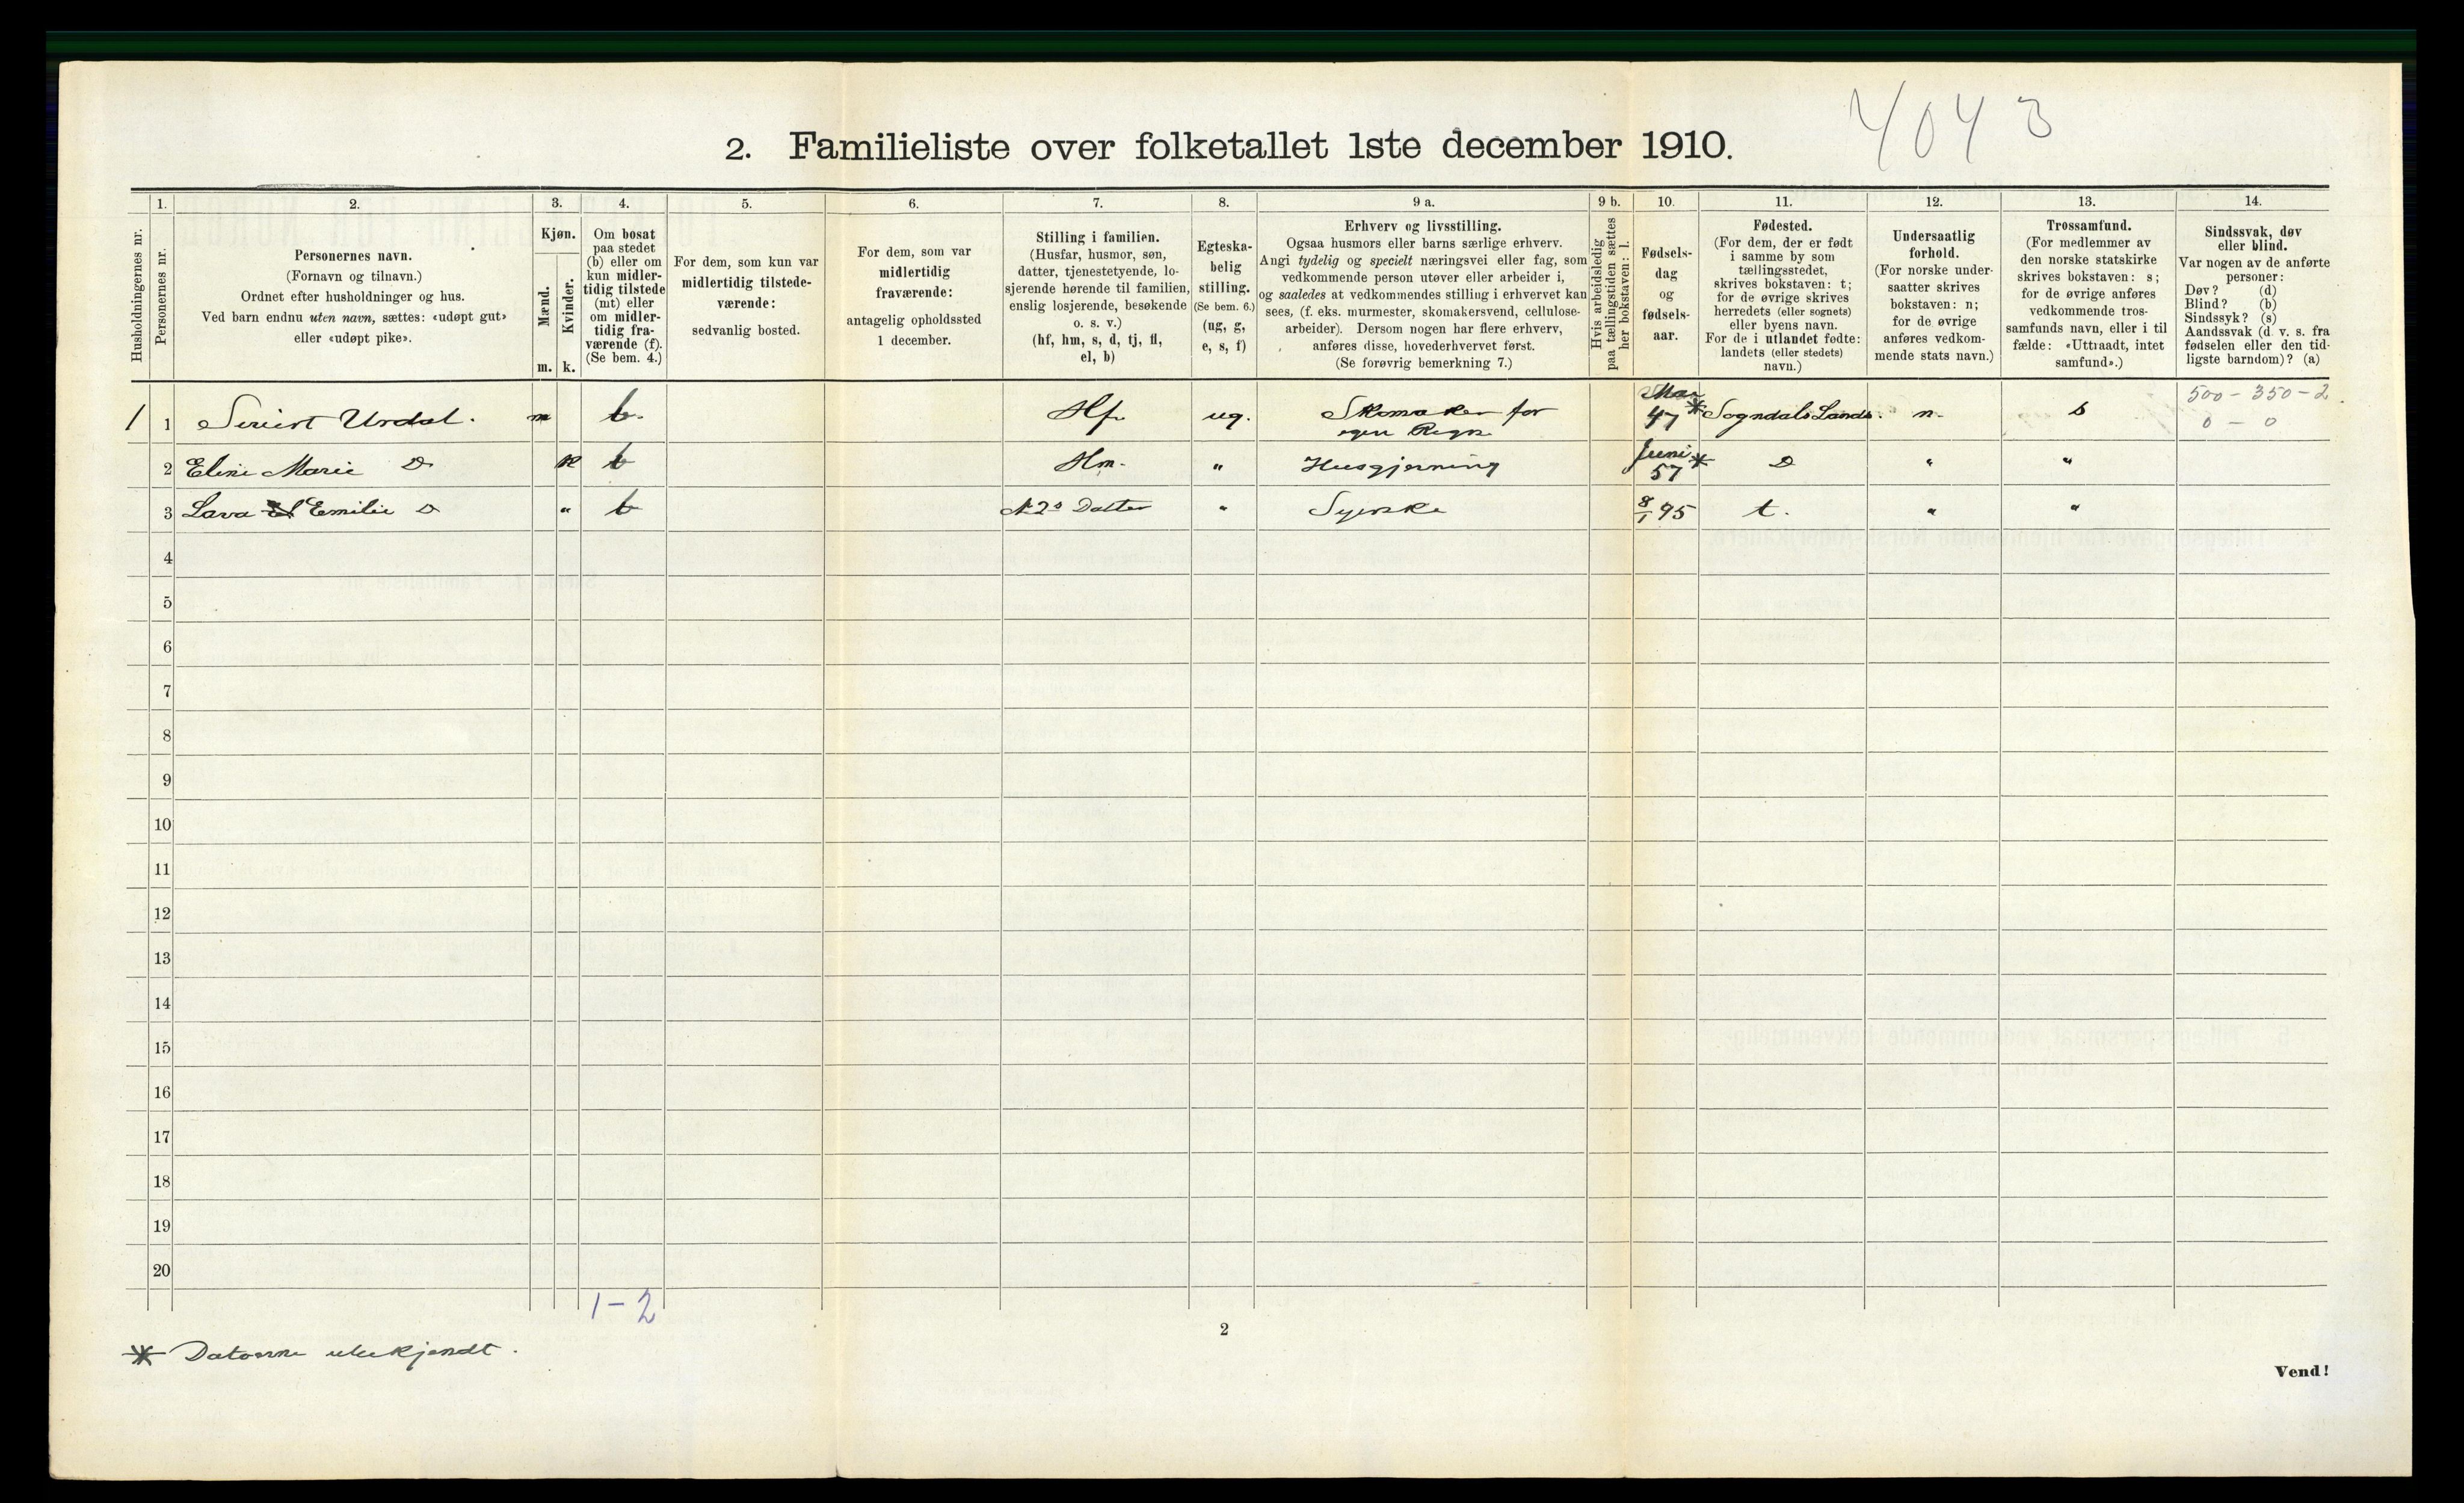 4043
2. Familieliste over folketallet 1ste december 1910.
Husholdningernes nr.
1.
Personernes nr.
2.
Personernes navn.
(Fornavn og tilnavn.)
Ordnet efter husholdninger og hus.
Ved barn endnu uten navn, sættes: «udøpt gut»
eller «udøpt pike».
3.
Kjøn.
Mænd.
Kvinder.
m. k.
4.
Om bosat
paa stedet
(b) eller om
kun midler-
tidig tilstede
(mt) eller
om midler-
tidig fra-
værende (f).
(Se bem. 4.)
5.
For dem, som kun var
midlertidig tilstede-
værende:
sedvanlig bosted.
6.
For dem, som var
midlertidig
fraværende:
antagelig opholdssted
1 december.
7.
Stilling i familien.
(Husfar, husmor, søn,
datter, tjenestetyende, lo-
sjerende hørende til familien,
enslig losjerende, besøkende
o. s. v.)
(hf, hm, s, d, tj, fl,
el, b)
8.
Egteska-
belig
stilling.
(Se bem. 6.)
(ug, g,
e, s, f)
9 a.
Erhverv og livsstilling.
Ogsaa husmors eller barns særlige erhverv.
Angi tydelig og specielt næringsvei eller fag, som
vedkommende person utøver eller arbeider i,
og saaledes at vedkommendes stilling i erhvervet kan
sees, (f. eks. murmester, skomakersvend, cellulose-
arbeider). Dersom nogen har flere erhverv,
anføres disse, hovederhvervet først.
(Se forøvrig bemerkning 7.)
9 b.
Hvis arbeidsledig
paa tællingstiden sættes
her bokstaven: l.
10.
Fødsels-
dag
og
fødsels-
aar.
11.
Fødested.
(For dem, der er født
i samme by som
tællingsstedet,
skrives bokstaven: t;
for de øvrige skrives
herredets (eller sognets)
eller byens navn.
For de i utlandet fødte:
landets (eller stedets)
navn.)
12.
Undersaatlig
forhold.
(For norske under-
saatter skrives
bokstaven: n;
for de øvrige
anføres vedkom-
mende stats navn.)
13.
Trossamfund.
(For medlemmer av
den norske statskirke
skrives bokstaven: s;
for de øvrige anføres
vedkommende tros-
samfunds navn, eller i til
fælde: «Uttraadt, intet
samfund».)
14.
Sindssvak, døv
eller blind.
Var nogen av de anførte
personer:
Døv? (d)
Blind? (b)
Sindssyk? (s)
Aandssvak (d. v. s. fra
fødselen eller den tid-
ligste barndom)? (a)
1 1 Urdal. m b. Hf. ug. Skomaker for egen Regn. 47 * Sogndals Lands. n. s 500 - 350 - 2. 0 - 0
2 Eline Marie D k b Hm. " Husgjerning Juni * 57 D " "
3 Emilie D " b Datter " Syerske 8/1 95 t. " "
4
5
6
7
8
9
10
11
12
13
14
15
16
17
18
19
20
1 - 2
2
* Datoerne ubekjendt.
Vend!